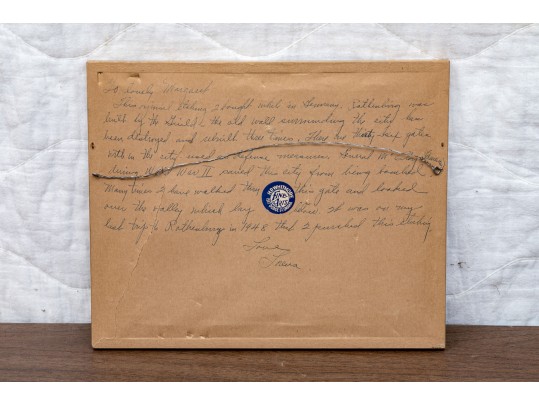 To lovely Margaret
This original Etching I bought while in Germany. Rothenburg was
built by the Guilds & the old wall surrounding the city has
been destroyed and rebuilt three times. There are thirty-six gates
with in the city used as defense measures.
during World War II saved this city from being bombed
Many times I have walked thru this gate and looked
over the Valley which lay below. It was on my
last trip to Rothenburg in 1948 that I purchased this Etching
Love